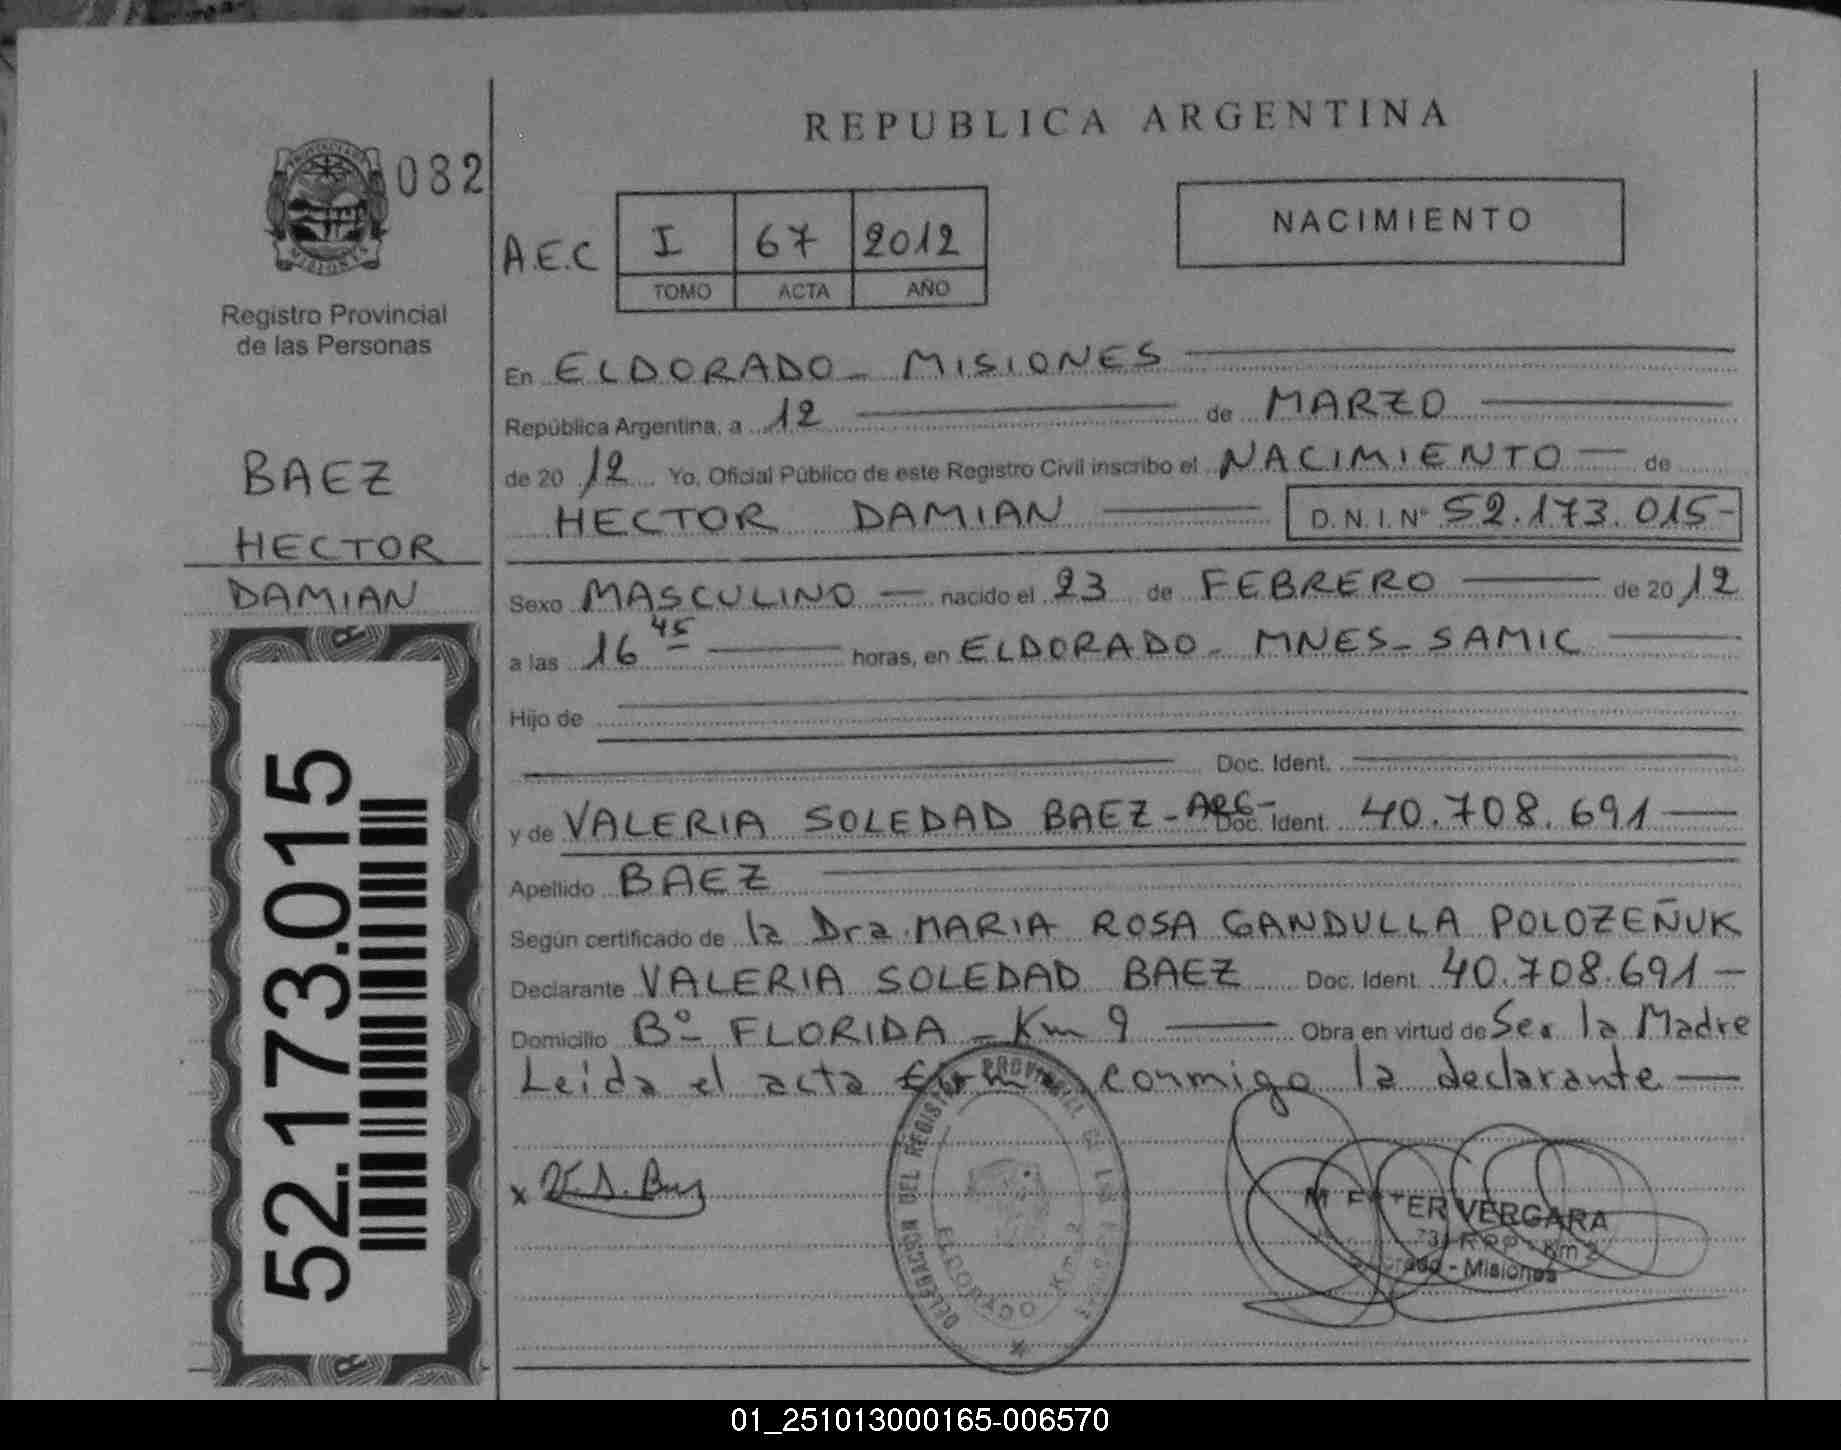 REPUBLICA ARGENTINA
PROVINCIA DE
MISIONES
082
Registro Provincial
de las Personas
A.E.C I 67 2012
TOMO ACTA AÑO
NACIMIENTO
En ELDORADO - MISIONES
República Argentina, a 12 de MARZO
de 20 12 Yo, Oficial Público de este Registro Civil inscribo el NACIMIENTO de
HECTOR DAMIAN D.N.I. Nº 52.173.015-
BAEZ
HECTOR
DAMIAN
Sexo MASCULINO nacido el 23 de FEBRERO de 20 12
a las 16 45 horas, en ELDORADO - MNES - SAMIC
Hijo de
Doc. Ident.
y de VALERIA SOLEDAD BAEZ - ARG- Doc. Ident. 40.708.691
Apellido BAEZ
Según certificado de la Dra. MARIA ROSA GANDULLA POLOZEÑUK
Declarante VALERIA SOLEDAD BAEZ Doc. Ident. 40.708.691
Domicilio Bº FLORIDA - Km 9 Obra en virtud de Ser la Madre
Leida el acta conmigo la declarante
52.173.015
x
DELEGACION DEL REGISTRO PROVINCIAL DE LAS
ELDORADO Km 2
VERGARA
Km 2
- Misiones
01_251013000165-006570